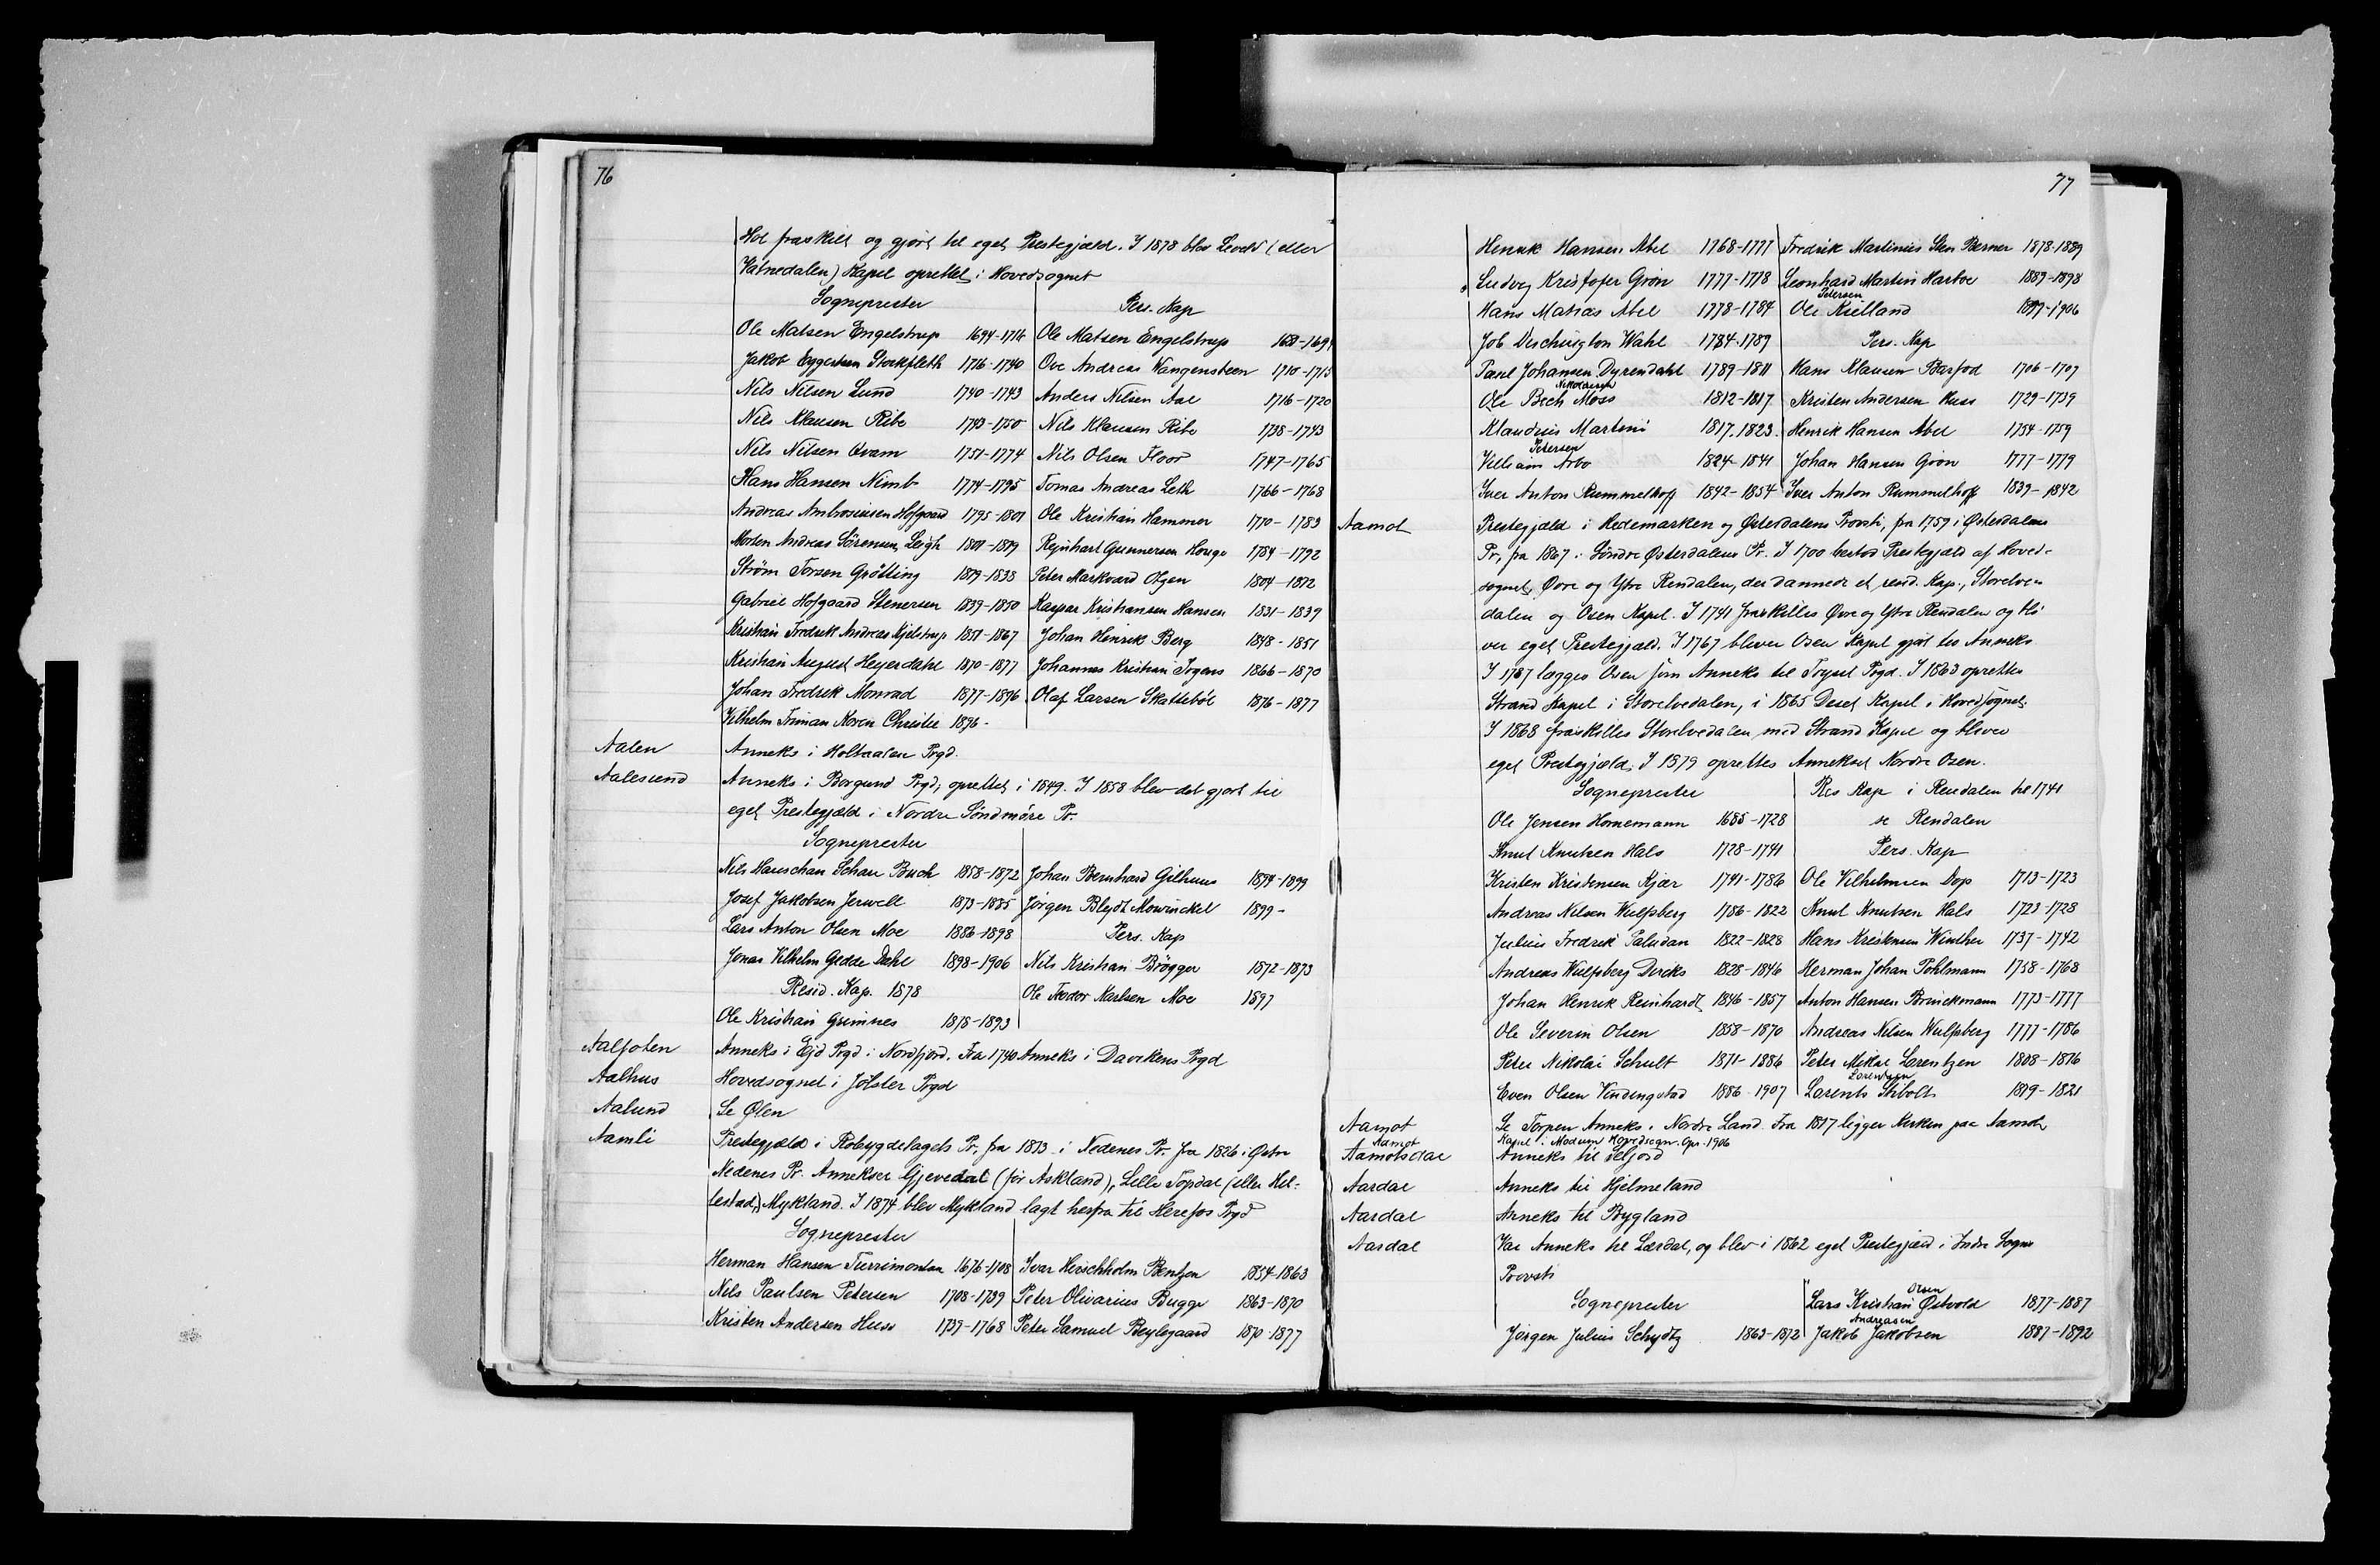 76
Hol fraskilt og gjort til eget Prestegjæld. I 1878 blev (eller
Vatnedalen) Kapel oprettet i Hovedsognet
Sogneprester
Pers. Kap
Ole Matsen Engelstrup 1694-1716 Ole Matsen Engelstrup
Jakob Eggertsen Stockfleth 1716-1740 Ove Andreas Wangensteen 1710-1715
Nils Nilsen Lund 1740-1743 Anders Nilsen Aal 1716-1720
Nils Klausen Ribe 1743-1750 Nils Klausen Ribe 1738-1743
Nils Nilsen Qvam 1751-1774 Nils Olsen Floor 1747-1765
Hans Hansen Nimb 1774-1795 Tomas Andreas Leth 1766-1768
Andreas Ambrosiussen Hofgaard 1795-1801 Ole Kristian Hammer 1770-1783
Morten Andreas Sörensen Leigh 1801-1819 Rejnhart Gunnersen Houge 1784-1792
Ström Torsen Grötting 1819-1838 Peter Markvard Otzen 1804-1812
Gabriel Hofgaard Stenersen 1839-1850 Kaspar Kristiansen Hansen 1831-1839
Kristian Fredrik Andreas Kjelstrup 1851-1867 Johan Henrik Berg 1848-1851
Kristian August Heyerdahl 1870-1877 Johannes Kristian Irgens 1866-1870
Johan Fredrik Monrad 1877-1896 Olaf Larsen Skattebøl 1876-1877
Vilhelm Friman Koren Christie 1896-
Aalen Anneks i Holtaalen Prgd.
Aalesund Anneks i Borgund Prgd, oprettet i 1849. I 1858 blev det gjort til
eget Prestegjæld i Nordre Söndmöre Pr.
Sogneprester
Nils Schan Buch 1858-1872 Johan Bernhard Gilhuus 1894-1899
Josef Jakobsen Jervell 1873-1885 Jørgen Blydt Mowinckel 1899-
Lars Anton Olsen Moe 1886-1898 Pers. Kap
Jonas Vilhelm Gedde Dahl 1898-1906 Nils Kristian Brögger 1872-1873
Resid. Kap. 1878 Ole Teodor Karlsen Moe 1897
Ole Kristian Grimnes 1878-1893
Aalfoten Anneks i Ejd Prgd i Nordfjord. Fra 1740 Anneks i Davikens Prgd
Aalhus Hovedsognet i Jölster Prgd
Aalund Se Ølen
Aamli Prestegjæld i Robygdelagets Pr. fra 1813 i Nedenes Pr. fra 1826 i Østre
Nedenes Pr. Annekser Gjevedal (för Askland), Lille Topdal (eller Hil-
lestad), Mykland. I 1874 blev Mykland lagt herfra til Herefos Prgd
Sogneprester
Herman Hansen Turrimontan 1676-1708 Ivar Hirschholm Bentzen 1854-1863
Nils Paulsen Petersen 1708-1739 Peter Olivarius Bugge 1863-1870
Kristen Andersen Huss 1739-1768 Peter Samuel Beylegaard 1870-1877
77
Henrik Hansen Abel 1768-1777 Fredrik Martinius Sten Berner 1878-1889
Ludvig Kristofer Grön 1777-1778 Leonhard Martin Hartvo 1889-1898
Petersen
Hans Matias Abel 1778-1784 Ole Kielland 1899-1906
Job Deschington Wahl 1784-1789 Pers. Kap
Paul Johansen Dyrendahl 1789-1811 Hans Klausen Barfod 1706-1707
Nikolaisen
Ole Bech Moss 1812-1817 Kristen Andersen Huss 1729-1739
Klaudius Martini 1817-1823 Henrik Hansen Abel 1754-1759
Petersen
Villiam Arbo 1824-1841 Johan Hansen Grön 1777-1779
Iver Anton Rummelhoff 1842-1854 Iver Anton Rummelhoff 1839-1842
Aamot Prestegjæld i Hedemarken og Østerdalens Provsti, fra 1759 i Østerdalens
Pr, fra 1867 i Söndre Østerdalens Pr. I 1700 bestod Prestegjæld af Hoved-
sognet, Øvre og Ytre Rendalen, der dannede et resid. Kap., Storelve-
dalen og Osen Kapel. I 1741 fraskilles Øvre og Ytre Rendalen og bli
ver eget Prestegjæld. I 1767 bliver Osen Kapel gjort til Anneks.
I 1787 lægges Osen som Anneks til Trysil Prgd. I 1863 oprettes
Strand Kapel i Storelvedalen, i 1865 Deset Kapel i Hovedsognet.
I 1868 fraskilles Storelvedalen med Strand Kapel og bliver
eget Prestegjæld. I 1879 oprettes Annekset Nordre Osen.
Sogneprester Res Kap i Rendalen til 1741
Ole Jensen Hornemann 1685-1728 se Rendalen
Knut Knutsen Hals 1728-1741 Pers. Kap
Kristen Kristensen Kjær 1741-1786 Ole Vilhelmsen Dop 1713-1723
Andreas Nilsen Wulfsberg 1786-1822 Knut Knutsen Hals 1723-1728
Julius Fredrik Paludan 1822-1828 Hans Kristensen Winther 1737-1742
Andreas Wulfsberg Dircks 1828-1846 Herman Johan Pohlmann 1758-1768
Johan Henrik Reinhardt 1846-1857 Anton Hansen Brinckmann 1773-1777
Ole Severin Olsen 1858-1870 Andreas Nilsen Wulfsberg 1777-1786
Peter Nikolai Schult 1871-1886 Peter Lorentzen 1808-1816
Lorentsen
Even Olsen Vindingstad 1886-1907 Lorents Stibolt 1819-1821
Aamot Se Torpen Anneks i Nordre Land. Fra 1817 ligger Kirken paa Aamot
Aamot Kapel i Modum Hovedsogn. Opr. 1906
Aamotsdal Anneks til Seljord
Aardal Anneks til Hjelmeland
Aardal Anneks til Bygland
Aardal Var Anneks til Lærdal, og blev i 1862 eget Prestegjæld i Indre Sogns
Provsti
Olsen
Sogneprester Lars Kristian Østvold 1877-1887
Andreasen
Jörgen Julius Schydtz 1863-1872 Jakob Jakobsen 1887-1892